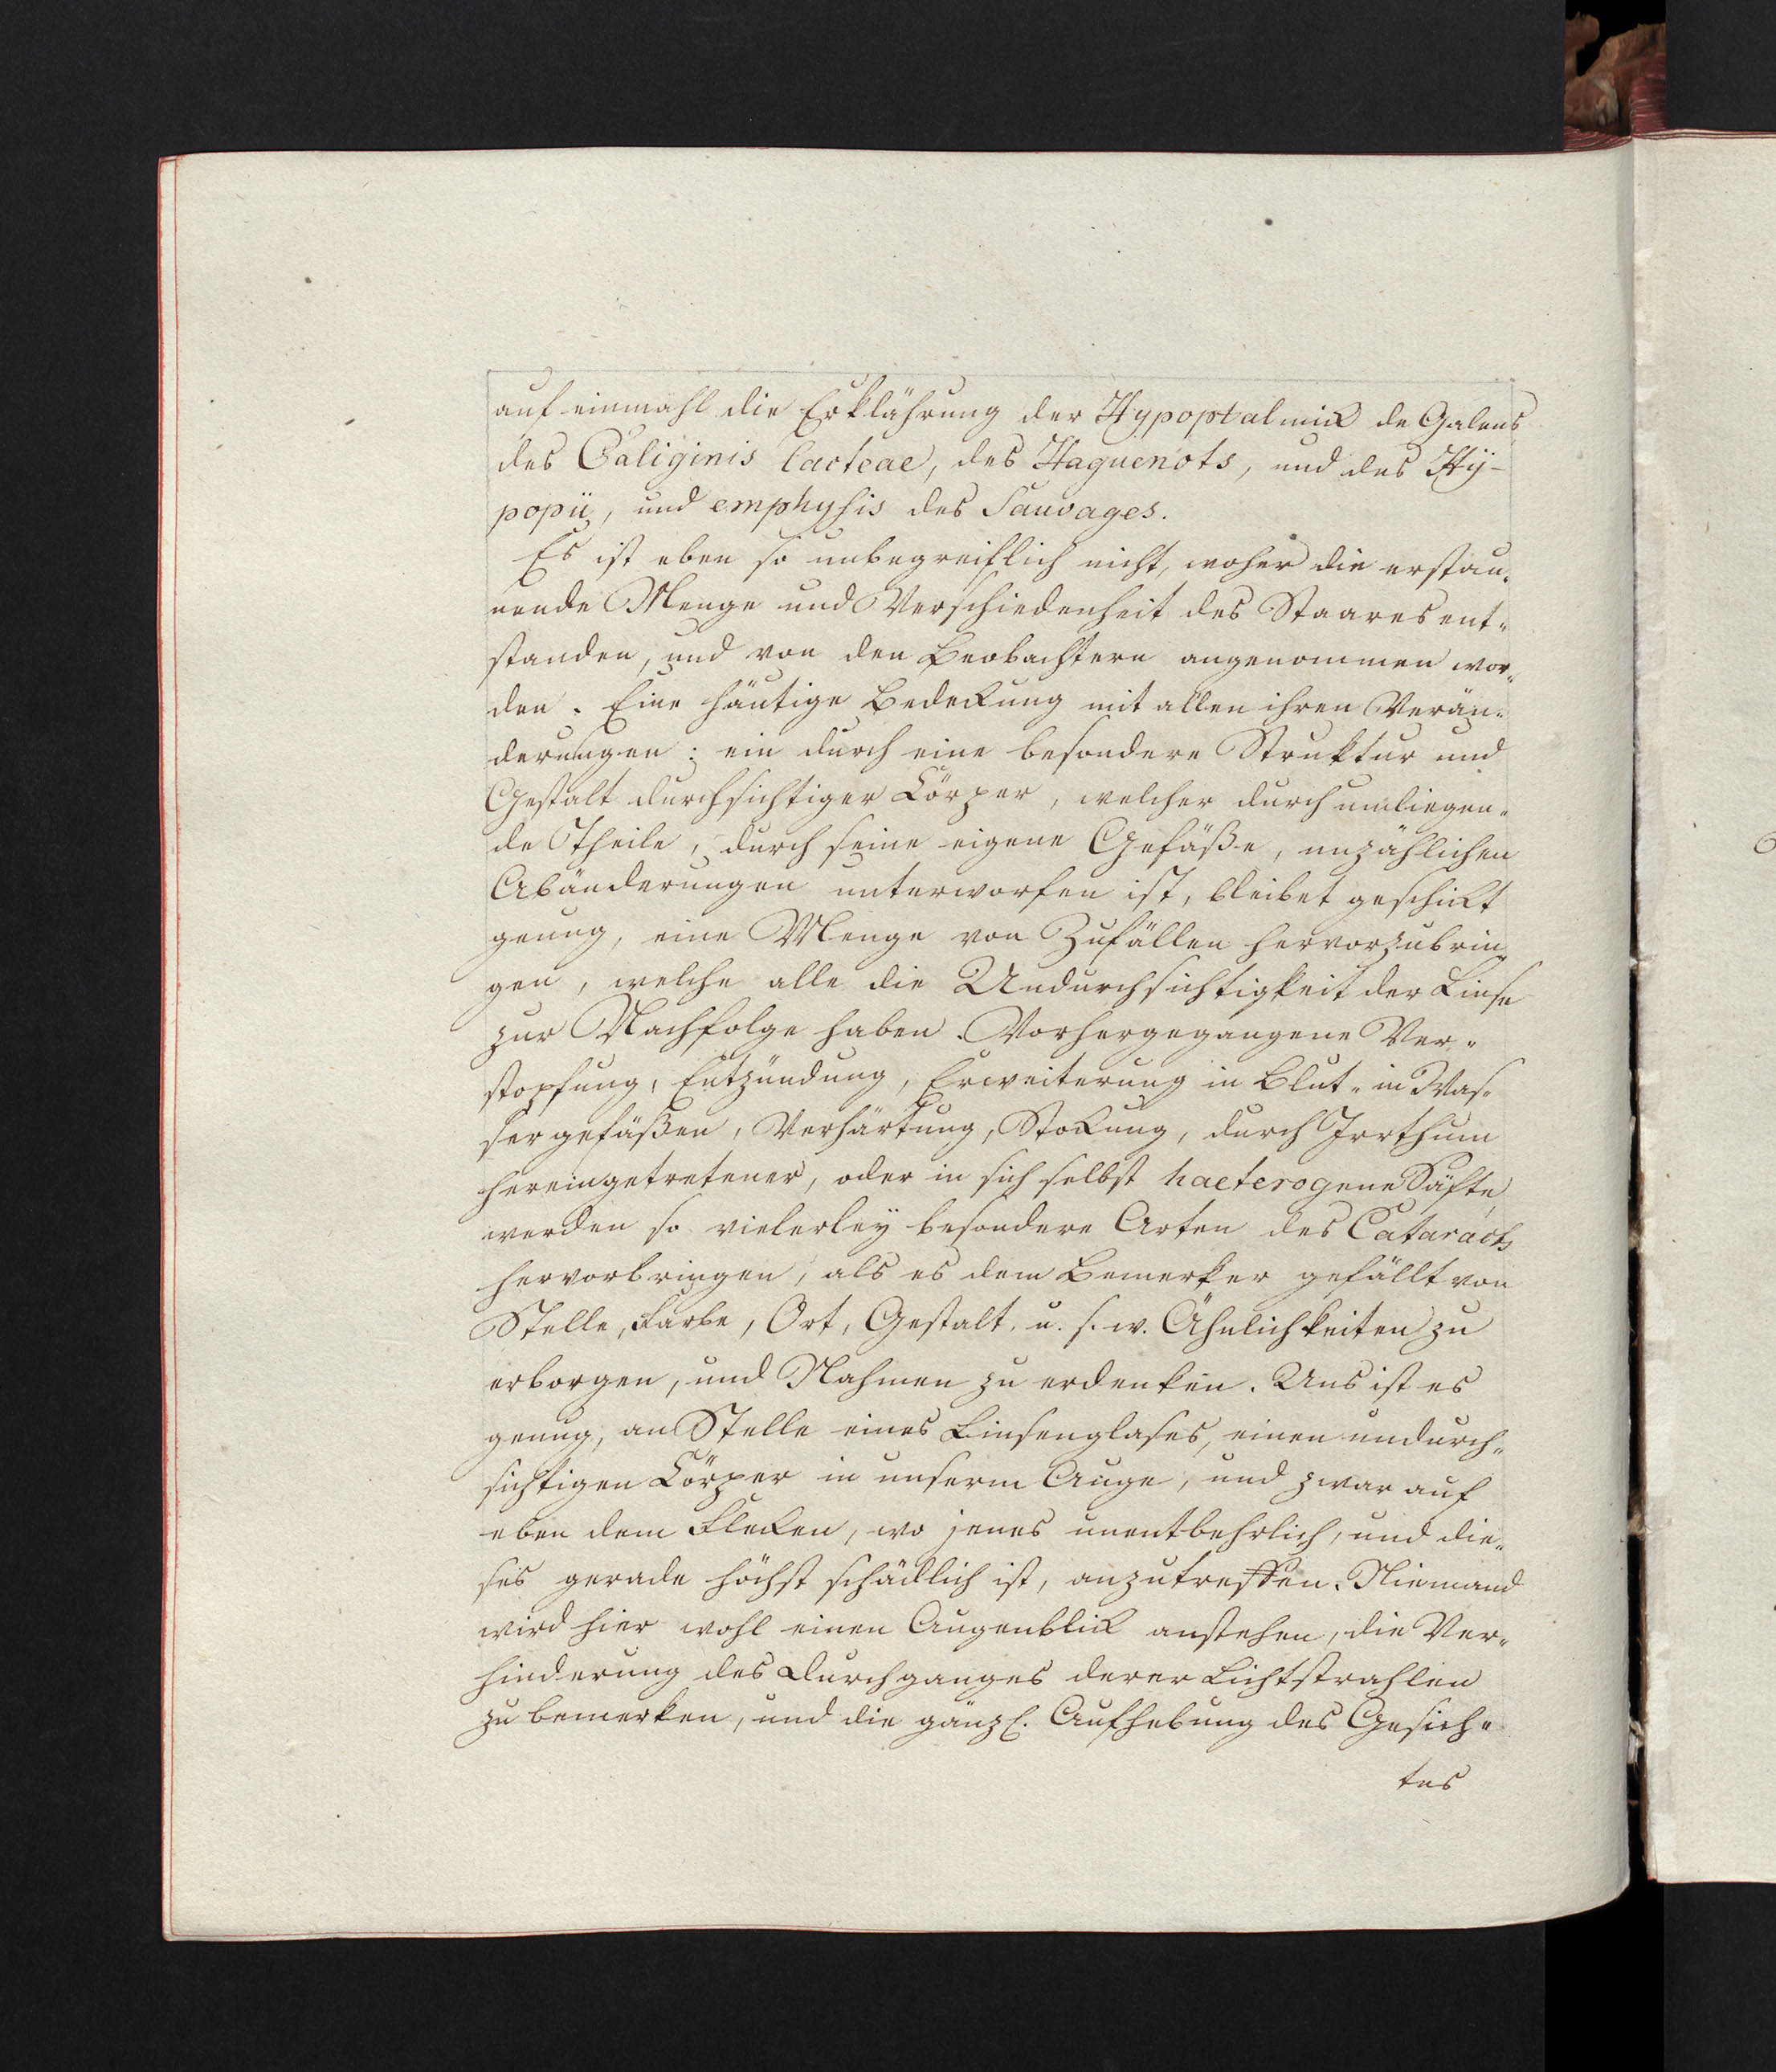 auf einmahl die Erklährung der Hypoptalmik de Galens
des Caliginis lacteae, des Haguenots, und des Hÿ-
popii, und emphysis des Sauvages.
Es ist eben so unbegreiflich nicht, woher die erstau„
nende Menge und Verschiedenheit des Staares ent„
standen, und von den Beobachtern angenommen wor„
den. Eine häutige Bedekung mit allen ihren Verän„
derungen: ein durch eine besondere Struktur und
Gestalt durchsichtiger Cörper, welcher durch umliegen„
de Theile, durch seine eigene Gefäße, unzählichen
Abänderungen unterworfen ist, bleibet geschikt
genug, eine Menge von Zufällen hervorzubrin„
gen, welche alle die Undurchsichtigkeit der Linse
zur Nachfolge haben. Vorhergegangene Ver„
stopfung, Entzündung, Erweiterung in Blut„ in Was„
sergefäßen, Verhärtung, Stokung, durch Irrthum
hereingetretener, oder in sich selbst haeterogene Säfte,
werden so vielerleÿ besondere Arten des Cataracts
hervorbringen, als es dem Bemerker gefällt von
Stelle, Farbe, Ort, Gestalt, u. s. w. Ähnlichkeiten zu
erborgen, und Nahmen zu erdenken. Uns ist es
genug, an Stelle eines Linsenglases, einen undurch„
sichtigen Cörper in unserm Auge, und zwar auf
eben dem Fleken, wo jenes unentbehrlich, und die„
ses gerade höchst schädlich ist, anzutreffen. Niemand
wird hier wohl einen Augenblik anstehen, die Ver„
hinderung des Durchganges derer Lichtstrahlen
zu bemerken, und die gänzl. Aufhebung des Gesich„
tes